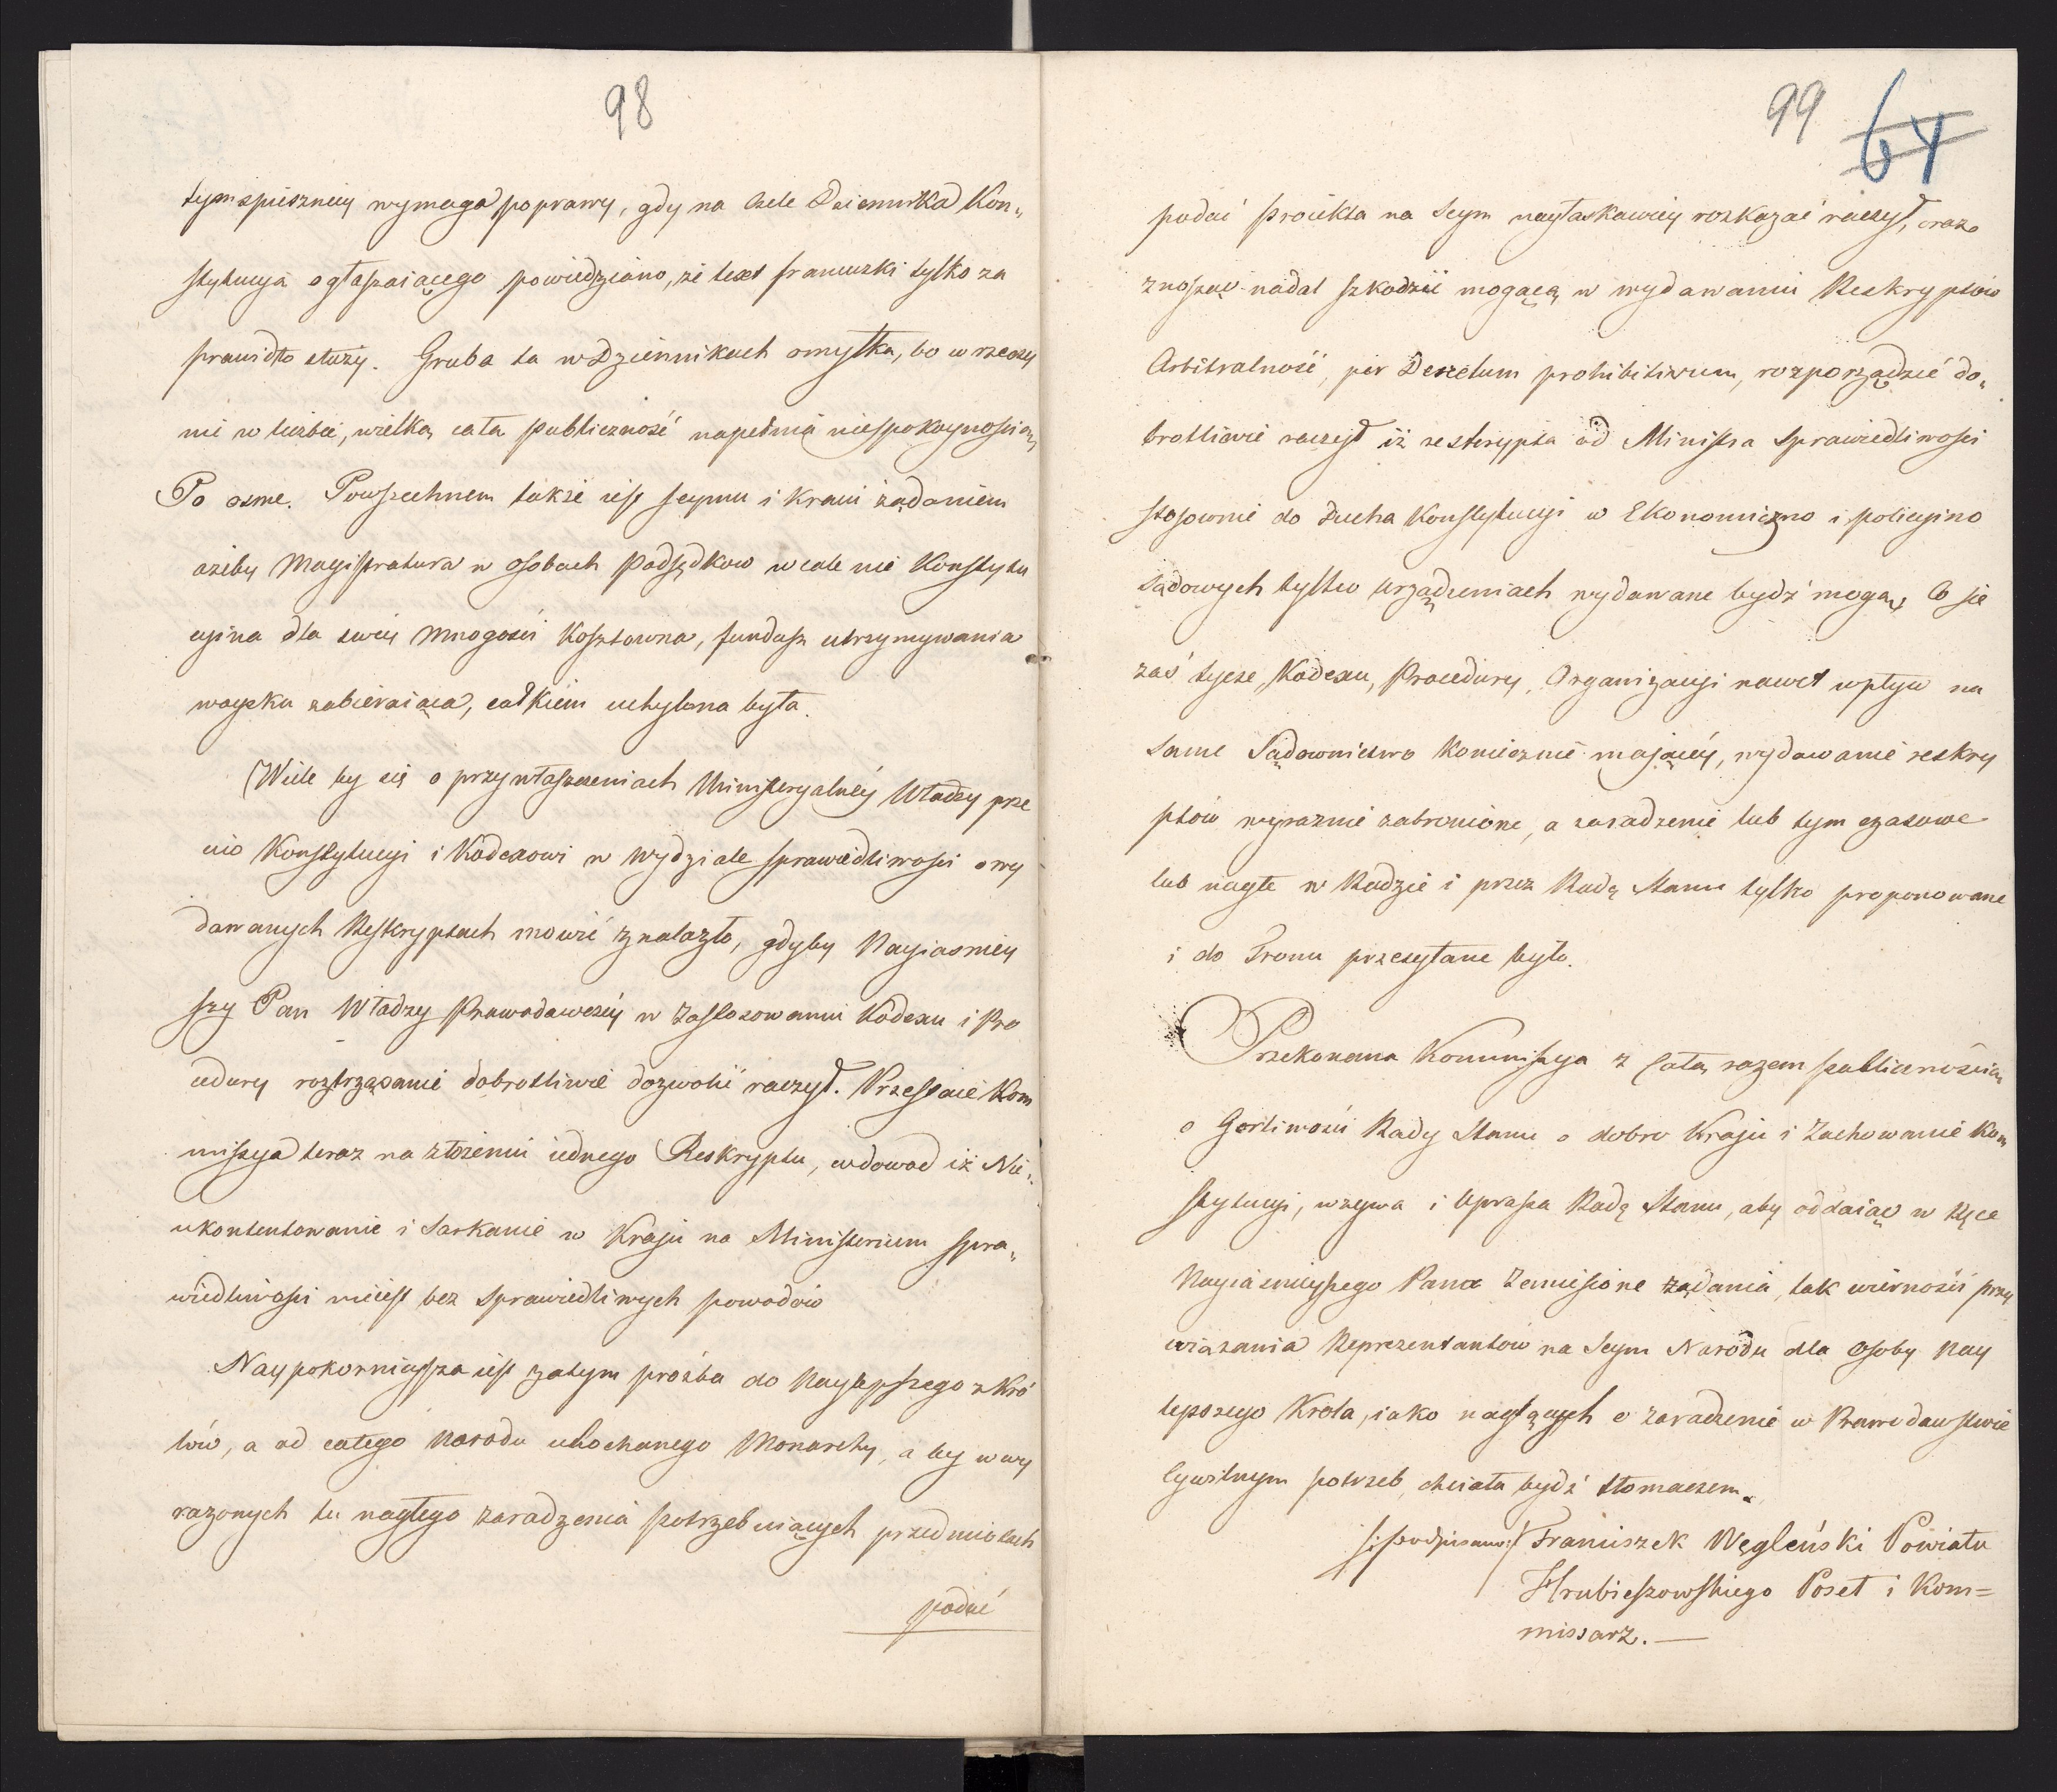 98
tymspieszniey wymaga poprawy, gdy na czele Dziennika Kon„
stytucyą ogłaszaiącego powiedziano, że text francuzki tylko za
prawidło służy. Gruba ta w Dziennikach omyłka, bo w rzeczy
nie w liczbie, wielką całą publiczność napełnia niespokoynością,
Po osme. Powszechnem także iest seymu i kraiu żądaniem
ażeby Magistratura w osobach Podsędkow wcale nie Konstytu
cyina dla swéy mnogości kosztowna, fundusz utrzymywania
woyska zabieraiąca, całkiem uchylona była.
Wiele by się o przywłaszczeniach Ministeryalnéy Władzy prze
ciw Konstytucyi i Kodexowi w wydziale sprawiedliwości o wy
dawanych Reskryptach mowić znalazło, gdyby Nayiaśniey
szy Pan Władzy Prawodawczéy w zastosowaniu Kodexu i Pro
cedury roztrząsanie dobrotliwie dozwolić raczył. Przestaie Kom
missya teraz na złożeniu iednego Reskryptu, w dowod iż Nie„
ukontentowanie i Sarkanie w Kraju na Ministerium Spra„
wiedliwości nieiest bez sprawiedliwych powodów
Naypokornieysza iest zatym prośba do Naylepszego z Kró
lów, a od całego Narodu ukochanego Monarchy, aby w wy
rażonych tu nagłego zaradzenia potrzebuiących przedmiotach
podać
99 64
podać proiekta na Seym nayłaskawiéy rozkazać raczył, oraz
znosząc nadal szkodzić mogącą w wydawaniu Reskryptów
Arbitralność, per Decretum prohibitivum, rozporządzić do„
brotliwie raczył iż reskrypta od Ministra Sprawiedliwości
stosownie do Ducha Konstytucyi w Ekonomiczno i policyino
sądowych tylko urządzeniach wydawane bydź mogą, Co się
zaś tycze Kodexu, Procedury, Organizacyi nawet wpływ na
same Sądownictwo koniecznie majacéy, wydawanie reskry
ptów wyraznie zabronione, a zaradzenie lub tym czasowe
lub nagłe w Radzie i przez Radę Stanu tylko proponowane
i do Tronu przesyłane było.
Przekonana Kommissya z całą razem publicznością
o Gorliwości Rady Stanu o dobro Kraju i Zachowanie Kon
stytucyi, wzywa i Uprasza Radę Stanu, aby oddaiąc w Ręce
Nayiaśnieyszego Pana Zaniesione żądania, tak wierności przy
wiązania Reprezentantów na Seym Narodu dla Osoby Nay
lepszego Krola, iako naglących o zaradzenie w Prawodawstwie
Cywilnym potrzeb, chciała bydź tłomaczem.
/:podpisano:/ Franciszek Węgleński Powiatu
Hrubieszowskiego Poseł i Kom=
missarz. —